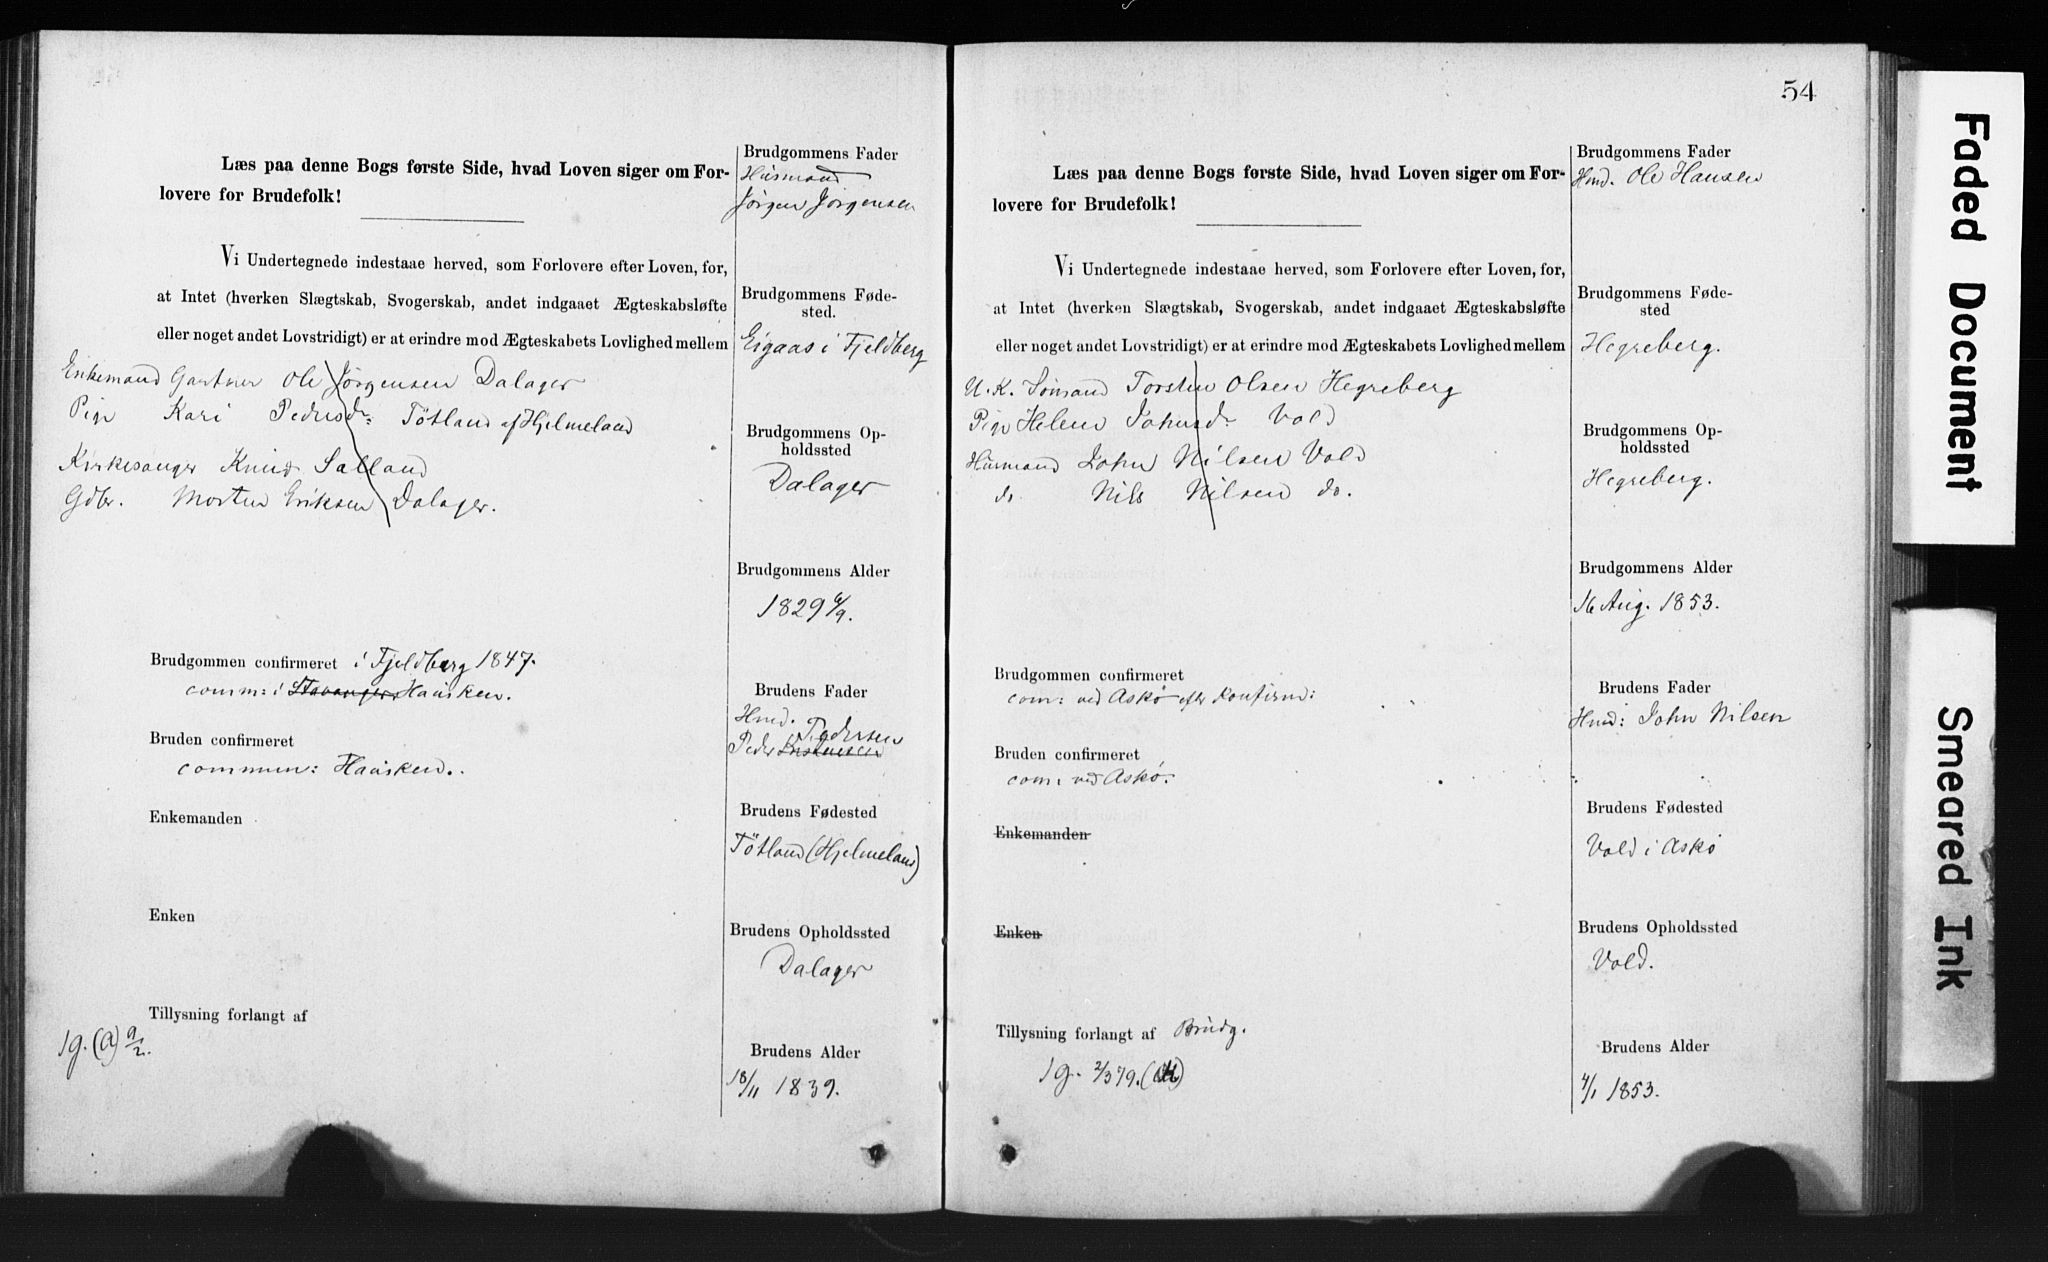 Læs paa denne Bogs første Side, hvad Loven siger om For-
lovere for Brudefolk!
Vi Undertegnede indestaae herved, som Forlovere efter Loven, for,
at Intet (hverken Slægtskab, Svogerskab, andet indgaaet Ægteskabsløfte
eller noget andet Lovstridigt) er at erindre mod Ægteskabets Lovlighed mellem
Enkemand Gartner Ole Jørgensen Dalager
Pige Kari Pedersdr: Tötland af Hjelmeland
Kirkesanger Knud Salland
Gdbr. Morten Eriksen Dalager.
Brudgommen confirmeret i Fjeldberg 1847.
comm: i Stavanger Hausken.
Bruden confirmeret
commun: Hausken.
Enkemanden
Enken
Tillysning forlangt af
1g. (a) 9/2.
Brudgommens Fader
Husmand
Jørgen Jørgensen
Brudgommens Føde-
sted.
Eigaas i Fjeldberg
Brudgommens Op-
holdssted
Dalager
Brudgommens Alder
1829 6/9.
Brudens Fader
Hmd.
Pedersen
Peder
Brudens Fødested
Tötland (Hjelmeland)
Brudens Opholdssted
Dalager
Brudens Alder
18/11 1839.
54
Læs paa denne Bogs første Side, hvad Loven siger om For-
lovere for Brudefolk!
Vi Undertegnede indestaae herved, som Forlovere efter Loven, for,
at Intet (hverken Slægtskab, Svogerskab, andet indgaaet Ægteskabsløfte
eller noget andet Lovstridigt) er at erindre mod Ægteskabets Lovlighed mellem
U. K. Sømand Torsten Olsen Hegreberg
Pige Helene Johnsdr Vold
Husmand John Nilsen Vold
do Nils Nilsen do.
Brudgommen confirmeret
com: ved Askø efter Konfirm:
Bruden confirmeret
com: ved Askø.
Enkemanden
Enken
Tillysning forlangt af Brudg.
1g. 2/3 79.
Brudgommens Fader
Hmd. Ole Hansen
Brudgommens Føde-
sted
Hegreberg.
Brudgommens Op-
holdssted
Hegreberg.
Brudgommens Alder
16 Aug. 1853.
Brudens Fader
Hmd: John Nilsen
Brudens Fødested
Vold i Askø
Brudens Opholdssted
Vold.
Brudens Alder
4/1 1853.
Faded Document
Smeared Ink